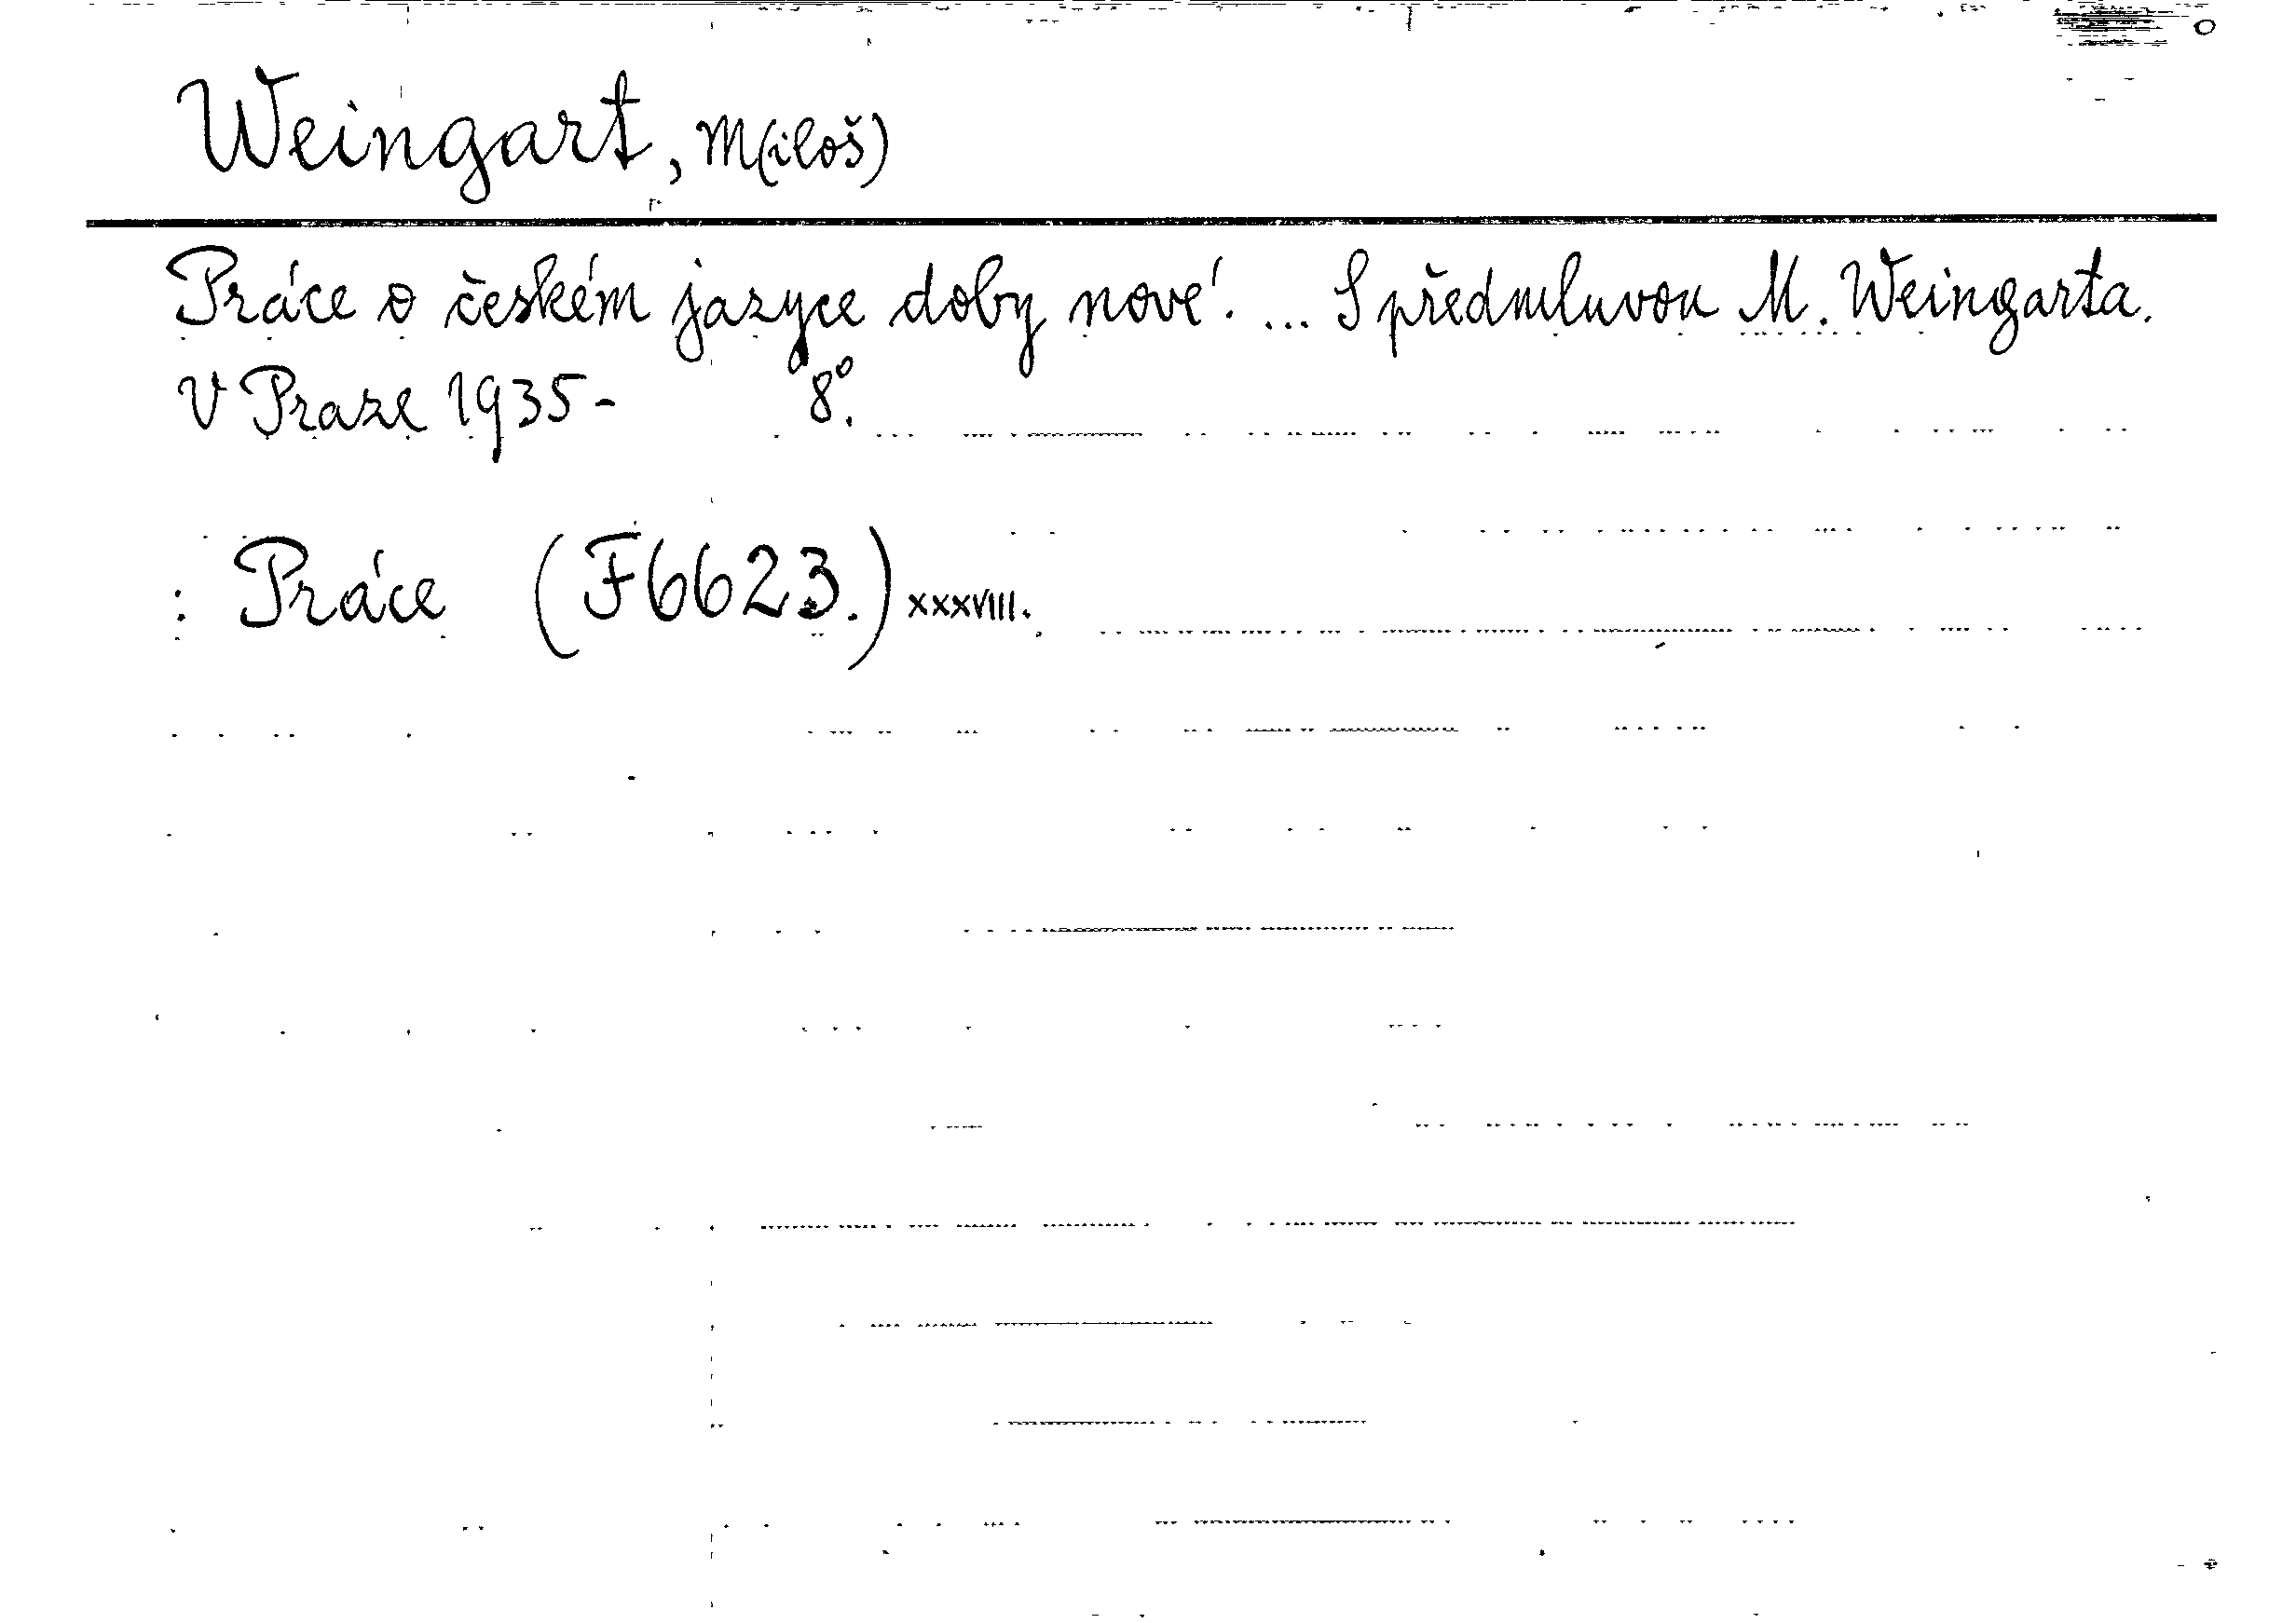 Weingart, M(iloš)
Práce o českém jazyce doby nové. ... S předmluvou M. Weingarta.
V Praze 1935- 8º.
: Práce (F6623.) XXXVIII.